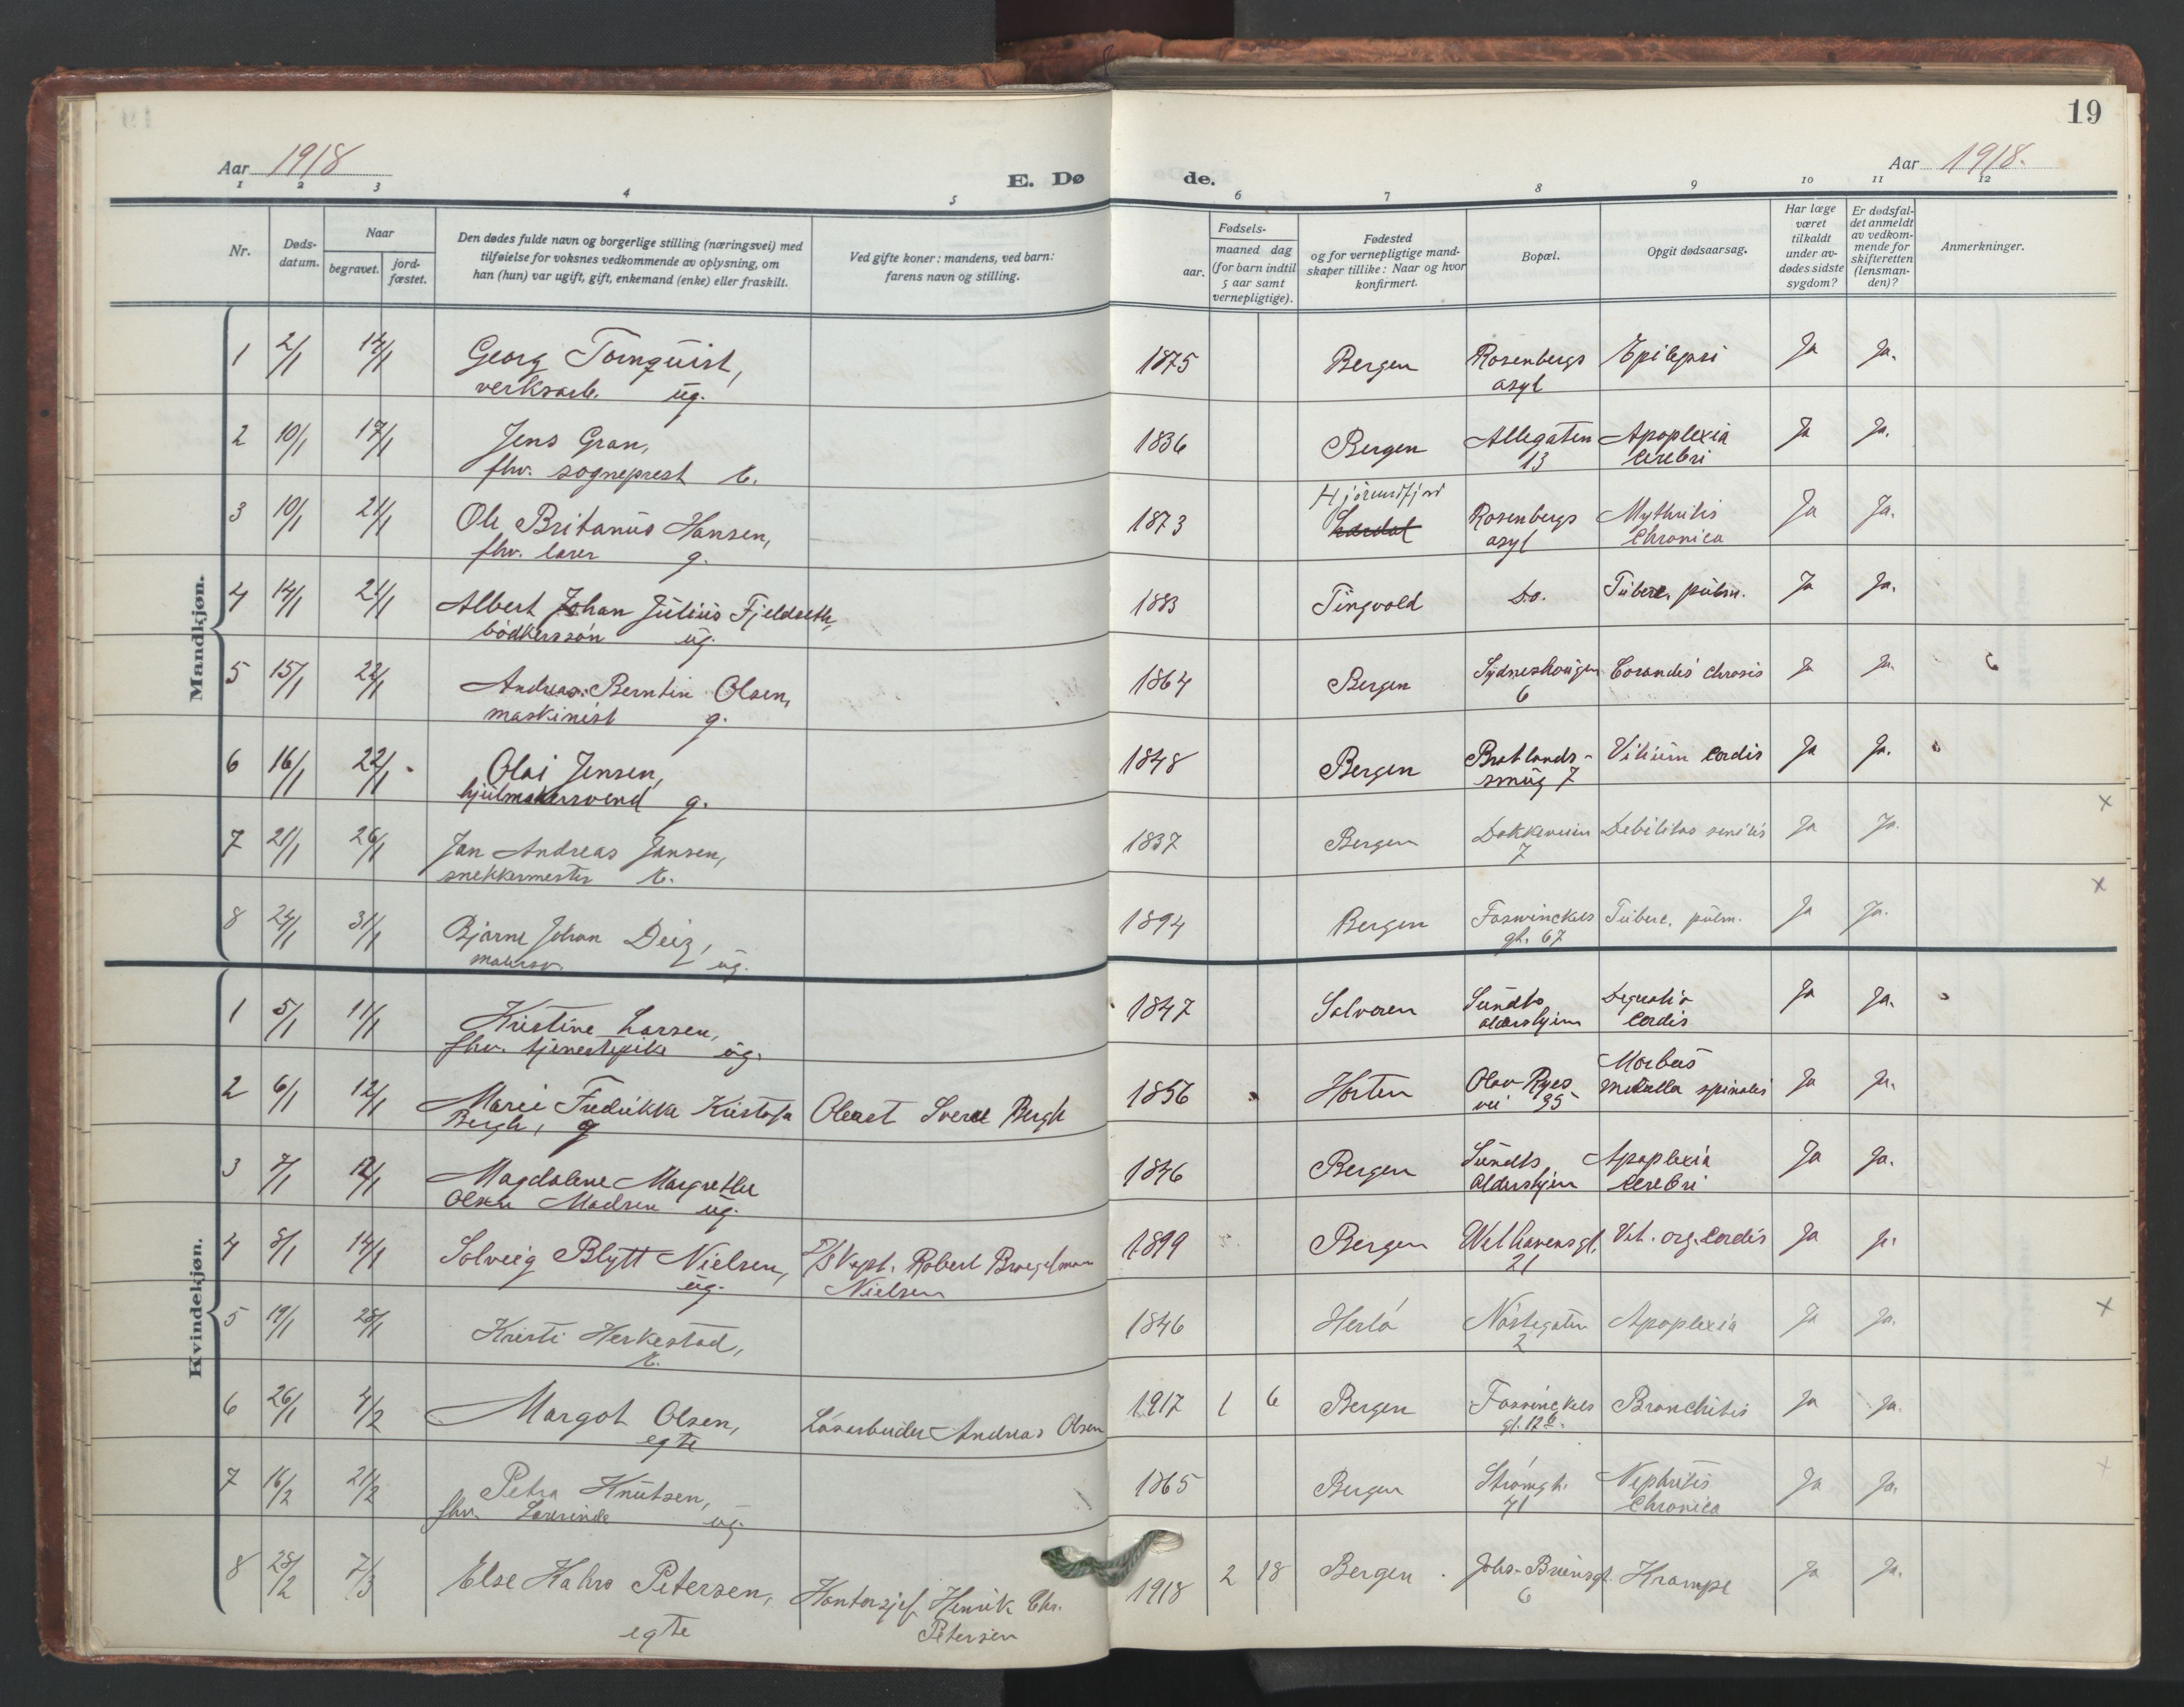 19
Aar 1918
E. Dø
de.
Aar 1918.
1 2 3 4 5 6 7 8 9 10 11 12
Nr.
Døds-
datum.
Naar
begravet.
jord-
fæstet.
Den dødes fulde navn og borgerlige stilling (næringsvei) med
tilføielse for voksnes vedkommende av oplysning, om
han (hun) var ugift, gift, enkemand (enke) eller fraskilt.
Ved gifte koner: mandens, ved barn:
farens navn og stilling.
Fødsels-
aar.
maaned dag
(for barn indtil
5 aar samt
vernepligtige).
Fødested
og for vernepligtige mand-
skaper tillike: Naar og hvor
konfirmert.
Bopæl.
Opgit dødsaarsag.
Har læge
været
tilkaldt
under av-
dødes sidste
sygdom?
Er dødsfal-
det anmeldt
av vedkom-
mende for
skifteretten
(lensman-
den)?
Anmerkninger.
Mandkjøn.
1 2/1 14/1 Georg Tornquist, 1875 Bergen Rosenbergs Epilepsi Ja Ja.
verksarb. ug. asyl
2 10/1 17/1 Jens Gran, 1836 Bergen Allegaten Apoplexia Ja Ja.
fhv. sogneprest E. 13 Cerebri
3 10/1 21/1 Ole Britanus Hansen, 1873 Hjörundfjord Rosenbergs Ja Ja.
fhv. lærer g. asyl Chronica
4 14/1 21/1 Albert Johan Julius Fjeldseth, 1883 Tingvold Do. Tuberc. pulm. Ja Ja.
bödkerssön ug.
5 15/1 22/1 Andreas Berntin Olsen, 1864 Bergen Sydneshaugen Ja Ja.
maskinist g. 6
6 16/1 22/1 Olai Jensen, 1848 Bergen Bratlands- Vitium Cordis Ja Ja.
hjulmakersvend g. smug 7
7 21/1 26/1 Jan Andreas Jansen, 1837 Bergen Dokkeveien Debilitas senilis Ja Ja. x
snekkermester E. 7
8 24/1 31/1 Bjarne Johan 1894 Bergen Fosswinckels Tuberc. pulm. Ja Ja. x
malersv. ug. gt. 67
Kvindekjøn.
1 5/1 11/1 Kristine Larsen, 1847 Salvoren Sundts Ja Ja.
fhv. tjenestepike ug. aldershjem Cordis
2 6/1 12/1 Marie Fredrikke Kristofa Oberst Sverre Bergh 1856 Horten Olav Ryes Morbus Ja Ja.
Bergh, g vei 35 medulla spinalis
3 7/1 12/1 Magdalene Margrethe 1846 Bergen Sundts Apoplexia Ja Ja.
Olsen Madsen ug. Aldershjem Cerebri
4 8/1 14/1 Solveig Blytt Nielsen, D/S kapt. Robert 1899 Bergen Welhavensgt. Vit. org. Cordis Ja Ja.
ug. Nielsen 21
5 19/1 28/1 Kristi Herkestad, 1846 Herlö Nöstegaten Apoplexia Ja Ja. x
E. 2
6 26/1 4/2 Margot Olsen, Lösarbeider Andreas Olsen 1917 1 6 Bergen Fosswinckels Bronchitis Ja Ja.
egte gt. 12
7 16/2 21/2 Petra Knutsen, 1865 Bergen Strömgt. Nephritis Ja Ja. x
fhv. Lærerinde ug. 71 Chronica
8 28/2 7/3 Else Hahro Petersen, Kontorsjef Henrik Chr. 1918 2 18 Bergen Johs. Brunsgt. Krampe Ja Ja.
egte Petersen 6